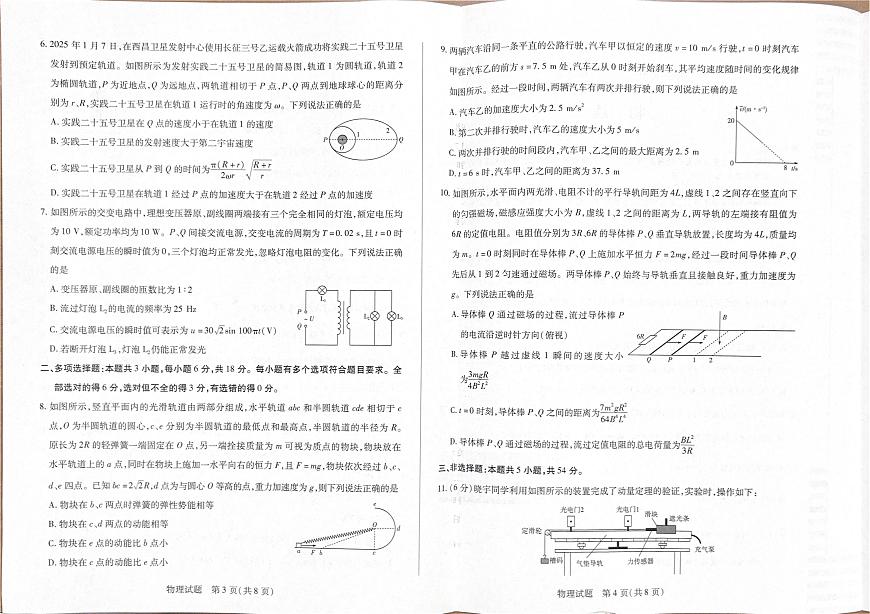 6. 2025 年 1 月 7 日,在西昌卫星发射中心使用长征三号乙运载火箭成功将实践二十五号卫星
发射到预定轨道。如图所示为发射实践二十五号卫星的简易图,轨道 1 为圆轨道,轨道 2
为椭圆轨道,P 为近地点,Q 为远地点,两轨道相切于 P 点,P、Q 两点到地球球心的距离分
别为 r、R,实践二十五号卫星在轨道 1 运行时的角速度为 ω。下列说法正确的是
A. 实践二十五号卫星在 Q 点的速度小于在轨道 1 的速度
B. 实践二十五号卫星的发射速度大于第二宇宙速度
C. 实践二十五号卫星从 P 到 Q 的时间为 π(R+r)/2ωr √((R+r)/r)
D. 实践二十五号卫星在轨道 1 经过 P 点的加速度大于在轨道 2 经过 P 点的加速度
P O 1 2 Q
7. 如图所示的交变电路中,理想变压器原、副线圈两端接有三个完全相同的灯泡,额定电压均
为 10 V,额定功率均为 10 W。P、Q 间接交流电源,交变电流的周期为 T=0.02 s,且 t=0 时
刻交流电源电压的瞬时值为 0,三个灯泡均正常发光,忽略灯泡电阻的变化。下列说法正确
的是
A. 变压器原、副线圈的匝数比为 1∶2
B. 流过灯泡 L₂的电流的频率为 25 Hz
C. 交流电源电压的瞬时值可表示为 u=30√2sin 100πt(V)
D. 若断开灯泡 L₃,灯泡 L₂仍能正常发光
L₁ P U Q L₂ L₃
二、多项选择题:本题共 3 小题,每小题 6 分,共 18 分。每小题有多个选项符合题目要求。全
部选对的得 6 分,选对但不全的得 3 分,有选错的得 0 分。
8. 如图所示,竖直平面内的光滑轨道由两部分组成,水平轨道 abc 和半圆轨道 cde 相切于 c
点,O 为半圆轨道的圆心,c、e 分别为半圆轨道的最低点和最高点,半圆轨道的半径为 R。
原长为 2R 的轻弹簧一端固定在 O 点,另一端拴接质量为 m 可视为质点的物块,物块放在
水平轨道上的 a 点,同时在物块上施加一水平向右的恒力 F,且 F=mg,物块依次经过 b、c、
d、e 四点。已知 bc=2√2R,d 点为与圆心 O 等高的点,重力加速度为 g,则下列说法正确的是
A. 物块在 b、c 两点时弹簧的弹性势能相等
B. 物块在 c、d 两点的动能相等
C. 物块在 e 点的动能比 b 点小
D. 物块在 c 点的动能比 e 点小
a F b c d e O
物理试题 第 3 页(共 8 页)
9. 两辆汽车沿同一条平直的公路行驶,汽车甲以恒定的速度 v=10 m/s 行驶,t=0 时刻汽车
甲在汽车乙的前方 s=7.5 m 处,汽车乙从 0 时刻开始刹车,其平均速度随时间的变化规律
如图所示。经过一段时间,两辆汽车有两次并排行驶,则下列说法正确的是
A. 汽车乙的加速度大小为 2.5 m/s²
B. 第二次并排行驶时,汽车乙的速度大小为 5 m/s
C. 两次并排行驶的时间段内,汽车甲、乙之间的最大距离为 2.5 m
D. t=6 s 时,汽车甲、乙之间的距离为 37.5 m
v̄/(m·s⁻¹) 20 0 8 t/s
10. 如图所示,水平面内两光滑、电阻不计的平行导轨间距为 4L,虚线 1、2 之间存在竖直向下
的匀强磁场,磁感应强度大小为 B,虚线 1、2 之间的距离为 L,两导轨的左端接有阻值为
6R 的定值电阻。电阻值分别为 3R、6R 的导体棒 P、Q 垂直导轨放置,长度均为 4L,质量均
为 m。t=0 时刻同时在导体棒 P、Q 上施加水平恒力 F=2mg,经过一段时间导体棒 P、Q
先后从 1 到 2 匀速通过磁场。两导体棒 P、Q 始终与导轨垂直且接触良好,重力加速度为
g。下列说法正确的是
A. 导体棒 Q 通过磁场的过程,流过导体棒 P
的电流沿逆时针方向(俯视)
B. 导体棒 P 越过虚线 1 瞬间的速度大小
为 3mgR/4B²L²
C. t=0 时刻,导体棒 P、Q 之间的距离为 7m²gR²/64B⁴L⁴
D. 导体棒 P、Q 通过磁场的过程,流过定值电阻的总电荷量为 BL²/3R
6R F F B Q P 1 2
三、非选择题:本题共 5 小题,共 54 分。
11. (6 分)晓宇同学利用如图所示的装置完成了动量定理的验证,实验时,操作如下:
光电门2 光电门1 滑块 遮光条
定滑轮 充气泵
槽码 气垫导轨 力传感器
物理试题 第 4 页(共 8 页)